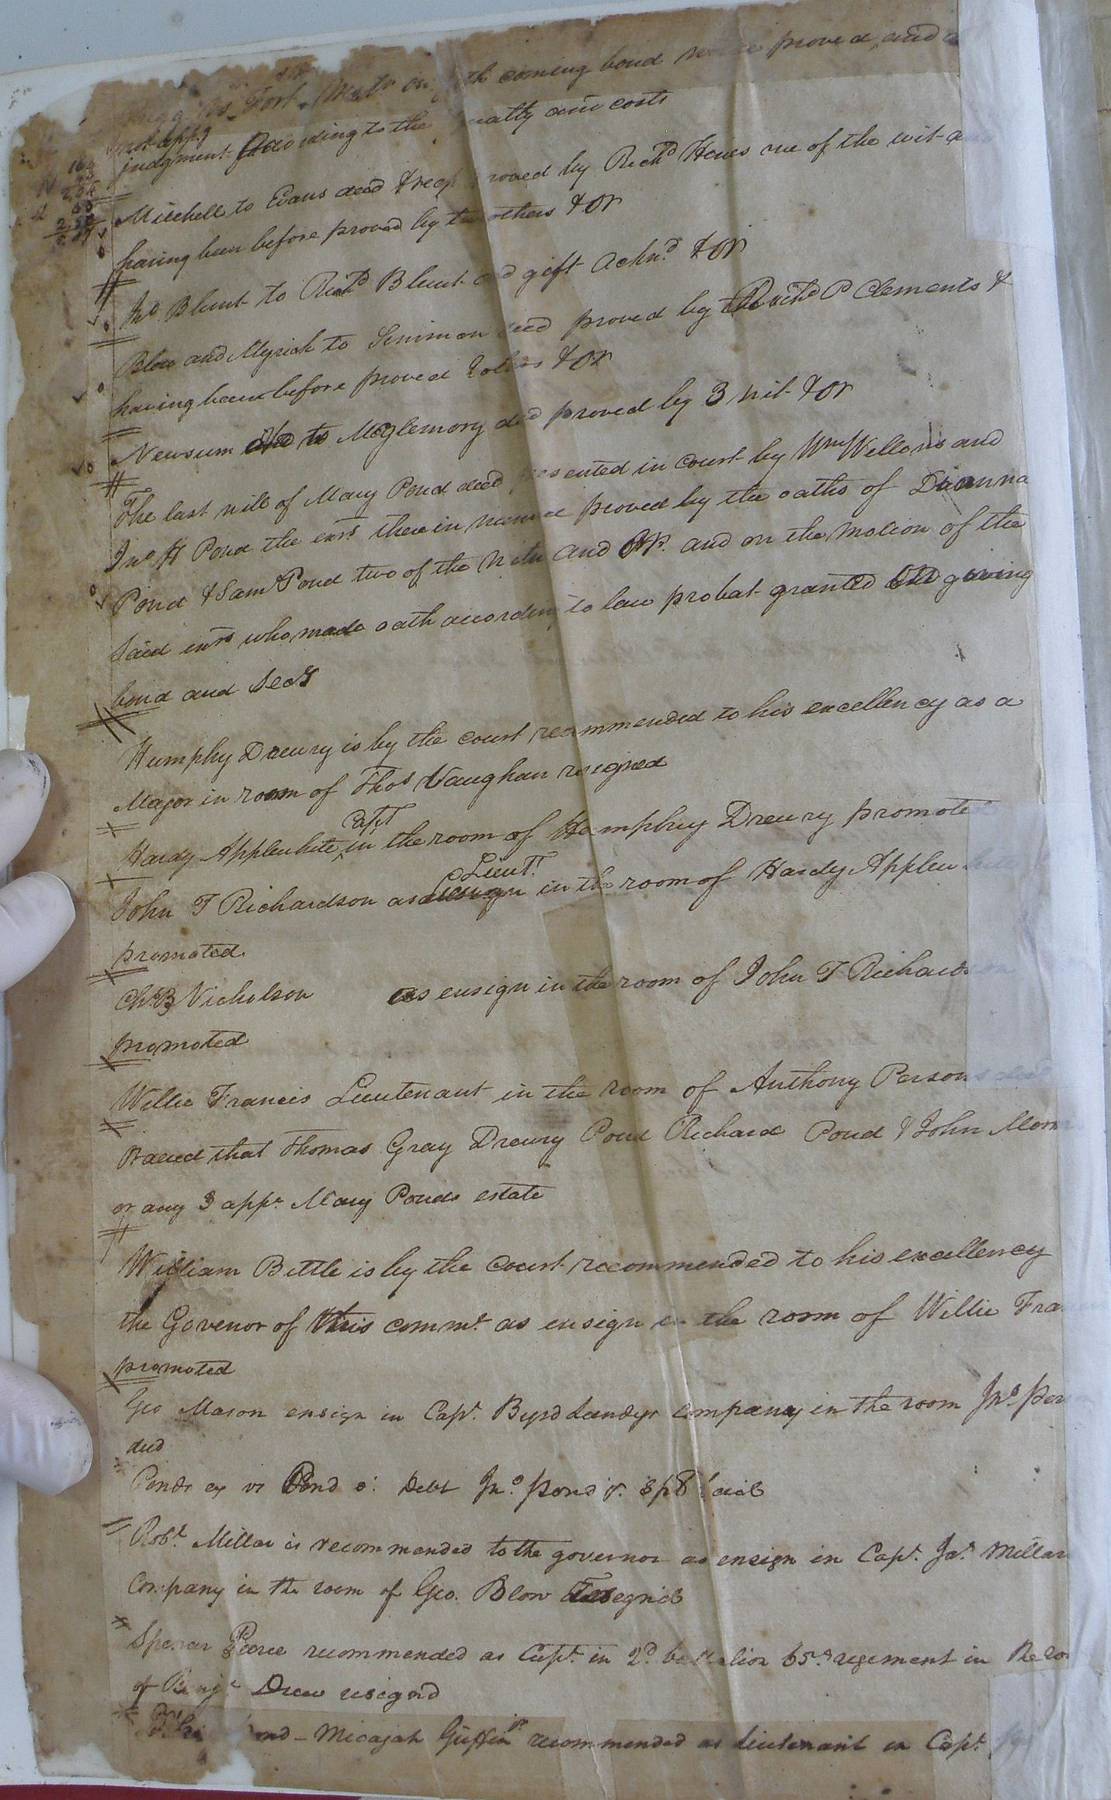 vs Fort Motn on forth coming bond proved and
not appg
judgment According to the penalty and costs
Mitchell to Evans deed & rect proved by Richd one of the wit a
having been before proved by two others & Or
Jno Blunt to Richd Blunt deed gift Acknd & Or
Blow and Myrick to Simmon deed proved by Richd P Clements &
having been before proved & Or
Newsum to McGlemory deed proved by 3 wit & Or
The last will of Mary Pond deed presented in court by Wm Wellons and
Jno H Pond the exrs therein named proved by the oaths of Dianna
Pond & Saml Pond two of the witn and Or. and on the motion of the
said exrs who made oath according to law probat granted giving
bond and secy
Humphy Drewry is by the court recommended to his excellency as a
Major in room of Thos Vaughan resigned
Capt
Hardy Applewhite in the room of Humphrey Drewry promoted
Lieut.
John T Richardson as in the room of Hardy Applew
promoted
Chs B Nicholson as ensign in the room of John T Richards
promoted
Willie Francis Lieutenant in the room of Anthony Persons
Ordered that Thomas Gray Drewry Pond Richard Pond & John
or any 3 appr Mary Ponds estate
William Bittle is by the court recommended to his excellency
the Govenor of this commt as ensign in the room of Willie Fra
promoted
Geo Mason ensign in Capt. Byrd Landys company in the room Jno
ded
Ponds ex vs Pond Debt Jno. Pond jr. Sp B
Robt. Millar is recommended to the governor as ensign in Capt. Jas. Millar
Company in the room of Geo. Blow
Pierce recommended as Capt. in 2d battalion 65th regement in the ro
of Benja. Drew resignd
Micajah Griffin recommended as lieutenant in Capt.